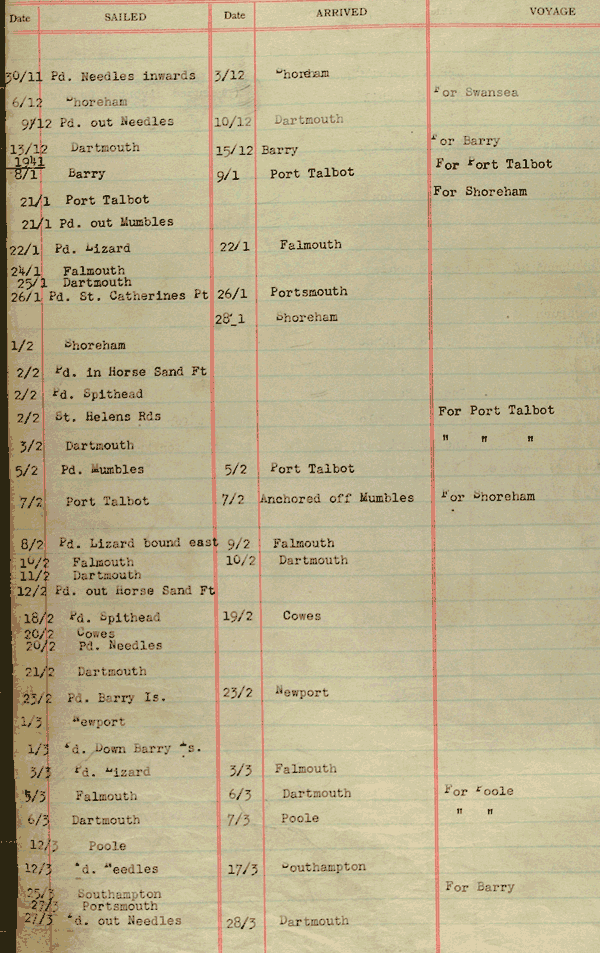 Date SAILED Date ARRIVED VOYAGE
30/11 Pd. Needles inwards 3/12 Shoreham
For Swansea
6/12 Shoreham
9/12 Pd. out Needles 10/12 Dartmouth
For Barry
13/12 Dartmouth 15/12 Barry
1941
For Port Talbot
8/1 Barry 9/1 Port Talbot
For Shoreham
21/1 Port Talbot
21/1 Pd. out Mumbles
22/1 Pd. Lizard 22/1 Falmouth
24/1 Falmouth
25/1 Dartmouth
26/1 Pd. St. Catherines Pt 26/1 Portsmouth
28_1 Shoreham
1/2 Shoreham
2/2 Pd. in Horse Sand Ft
2/2 Pd. Spithead
2/2 St. Helens Rds For Port Talbot
3/2 Dartmouth " " "
5/2 Pd. Mumbles 5/2 Port Talbot
7/2 Port Talbot 7/2 Anchored off Mumbles For Shoreham
8/2 Pd. Lizard bound east 9/2 Falmouth
10/2 Falmouth 10/2 Dartmouth
11/2 Dartmouth
12/2 Pd. out Horse Sand Ft
18/2 Pd. Spithead 19/2 Cowes
20/2 Cowes
20/2 Pd. Needles
21/2 Dartmouth
23/2 Pd. Barry Is. 23/2 Newport
1/3 Newport
1/3 Pd. Down Barry Is.
3/3 Pd. Lizard 3/3 Falmouth
5/3 Falmouth 6/3 Dartmouth For Poole
6/3 Dartmouth 7/3 Poole " "
12/3 Poole
12/3 Pd. Needles 17/3 Southampton
For Barry
25/3 Southampton
27/3 Portsmouth
27/3 Pd. out Needles 28/3 Dartmouth